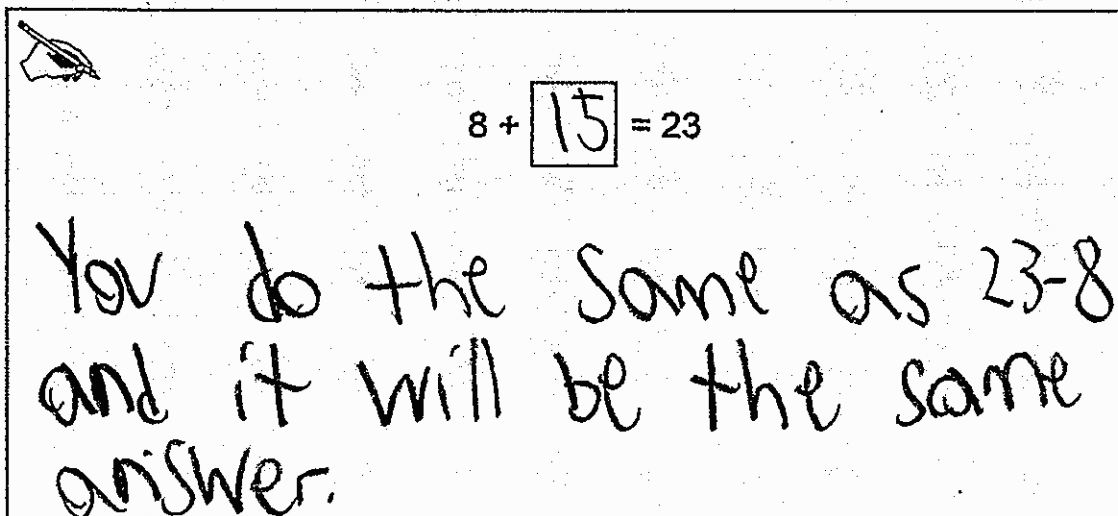 8 + 15 = 23
You do the same as 23-8
and it will be the same
answer.